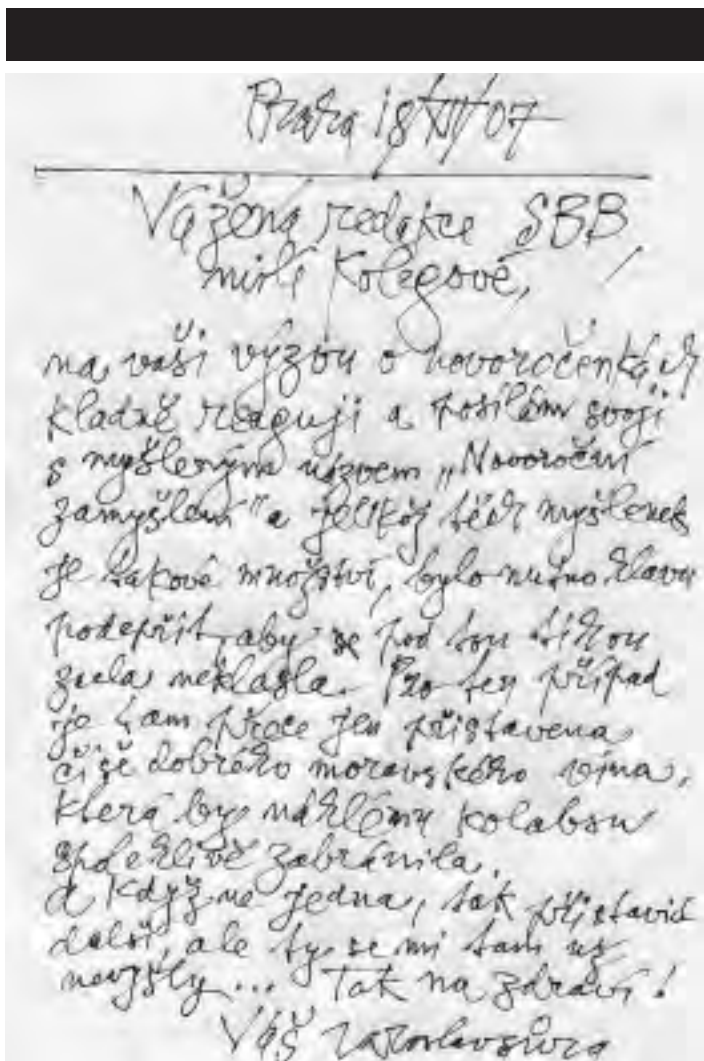 Praha 18/XII/07
Vážená redakce SBB,
milí kolegové,
na vaši výzvu o novoročenkách
kladně reaguji a posílám svoji
s myšleným názvem „Novoroční
zamyšlení" a jelikož těch myšlenek
je takové množství, bylo nutno hlavu
podepřít, aby se pod tou tíhou
zcela neklesla. Pro ten případ
je tam přece jen přistavena
číše dobrého moravského vína,
která by náhlému kolabsu
spolehlivě zabránila.
A když ne jedna, tak přistavit
další, ale ty se mi tam už
nevyšly... Tak na zdraví!
Váš